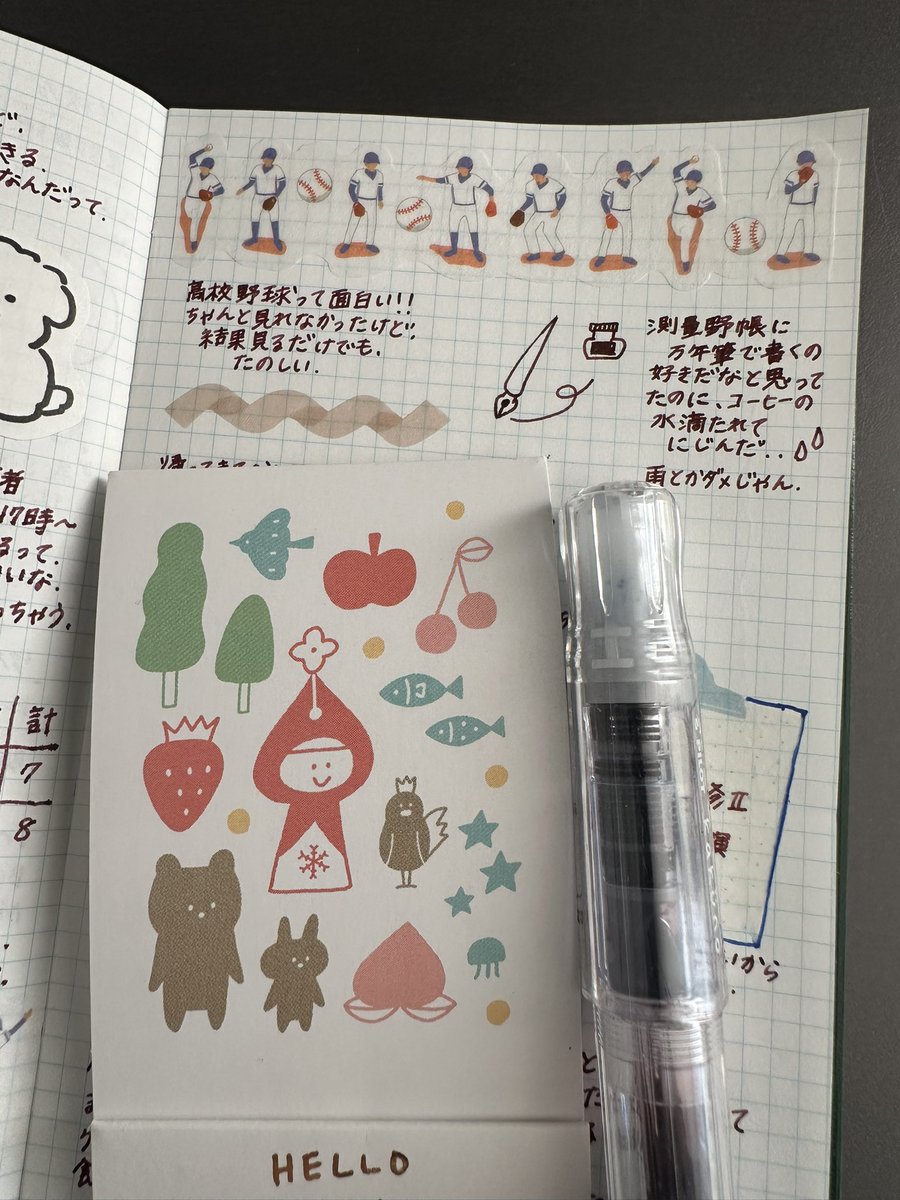 きる.
なんだって.
高校野球って面白い!!
ちゃんと見れなかったけど.
結果見るだけでも.
たのしい.
測量野帳に
万年筆で書くの
好きだなと思って
たのに、コーヒーの
水滴たれて
にじんだ..
雨とかダメじゃん.
者
17時〜
るって.
いな.
っちゃう.
計
7
8
修Ⅱ
から
て
HELLO